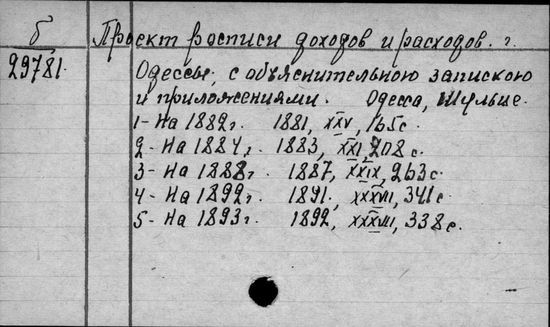 б Проект росписи доходов и расходов. г.
29781. Одессы с объяснительною запискою
и приложениями. Одесса, Шульце.
1 - На 1882 г. 1881, XXV, 165 с.
2 - На 1884 г. 1883, XXI, 208 с.
3 - На 1888 г. 1887, XXIX, 263 с.
4 - На 1892 г. 1891, XXXVII, 341 с.
5 - На 1893 г. 1892, XXXVIII, 338 с.